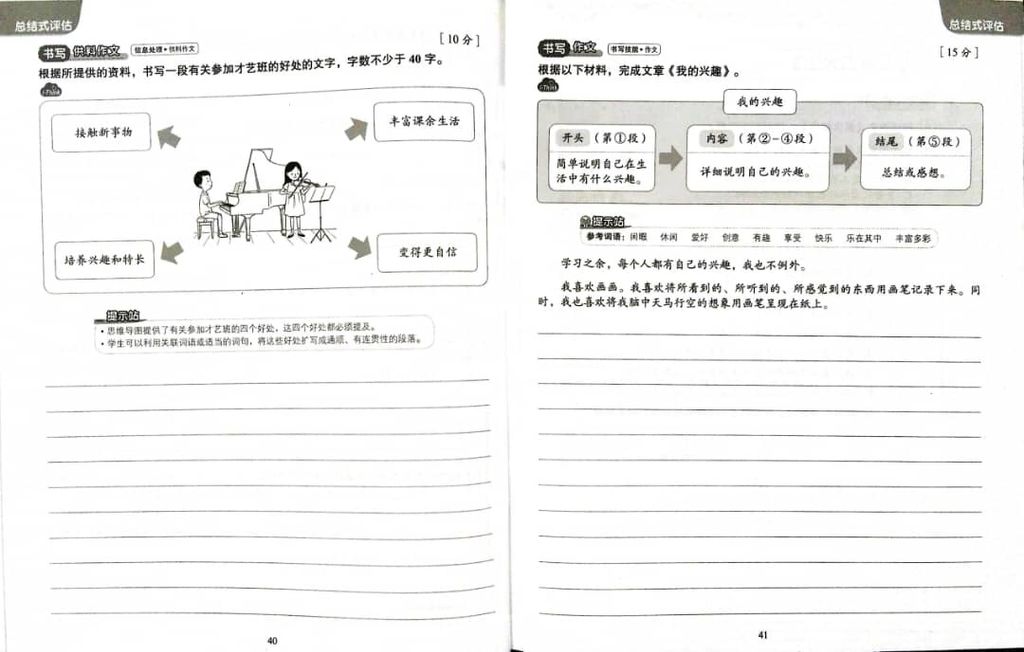 总结式评估
书写 供料作文 信息处理·供料作文 [10分]
根据所提供的资料，书写一段有关参加才艺班的好处的文字，字数不少于 40 字。
i-Think
接触新事物
丰富课余生活
培养兴趣和特长
变得更自信
提示站
• 思维导图提供了有关参加才艺班的四个好处，这四个好处都必须提及。
• 学生可以利用关联词语或适当的词句，将这些好处扩写成通顺、有连贯性的段落。
40
总结式评估
书写 作文 书写技能·作文 [15分]
根据以下材料，完成文章《我的兴趣》。
i-Think
我的兴趣
开头（第①段）
简单说明自己在生
活中有什么兴趣。
内容（第②-④段）
详细说明自己的兴趣。
结尾（第⑤段）
总结或感想。
提示站
参考词语：闲暇 休闲 爱好 创意 有趣 享受 快乐 乐在其中 丰富多彩
学习之余，每个人都有自己的兴趣，我也不例外。
我喜欢画画。我喜欢将所看到的、所听到的、所感觉到的东西用画笔记录下来。同
时，我也喜欢将我脑中天马行空的想象用画笔呈现在纸上。
41